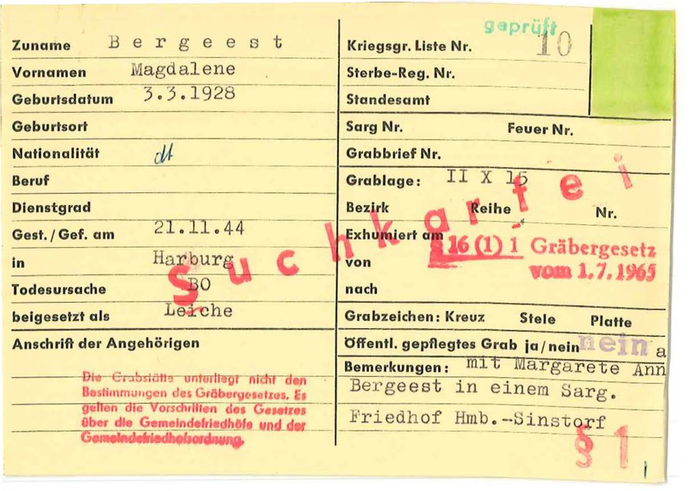 geprüft
Zuname Bergeest
Vornamen Magdalene
Geburtsdatum 3.3.1928
Geburtsort
Nationalität dt
Beruf
Dienstgrad
Gest./Gef. am 21.11.44
in Harburg
Todesursache BO
beigesetzt als Leiche
Anschrift der Angehörigen
Die Grabstätte unterliegt nicht den
Bestimmungen des Gräbergesetzes. Es
gelten die Vorschriften des Gesetzes
über die Gemeindefriedhöfe und der
Gemeindefriedhofsordnung.
Kriegsgr. Liste Nr. 10
Sterbe-Reg. Nr.
Standesamt
Sarg Nr. Feuer Nr.
Grabbrief Nr.
Grablage: II X 15
Bezirk Reihe Nr.
Exhumiert am
von
nach
Suchkartei
§ 16 (1) 1 Gräbergesetz
vom 1.7.1965
Grabzeichen: Kreuz Stele Platte
Öffentl. gepflegtes Grab ja/nein nein
Bemerkungen: mit Margarete Ann a
Bergeest in einem Sarg.
Friedhof Hmb.-Sinstorf
§ 1